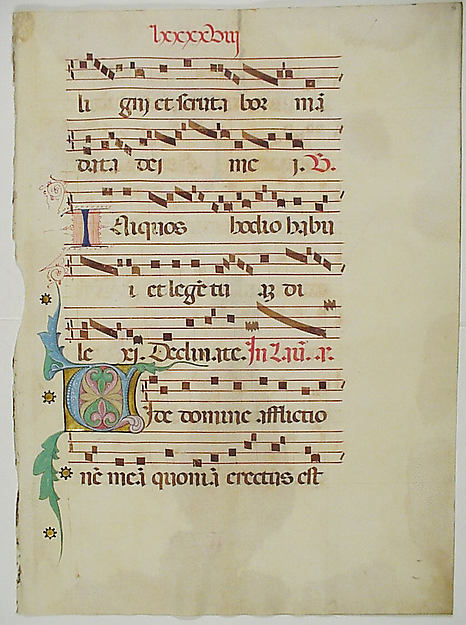 lxxxxviij
li gni et scruta bor mā
data dei me i. V.
Iniquos hodio habu
i et legē tu aȝ di
le xi. Declinate. In Laū. a.
Vide domine afflictio
nē meā quoniā erectus est